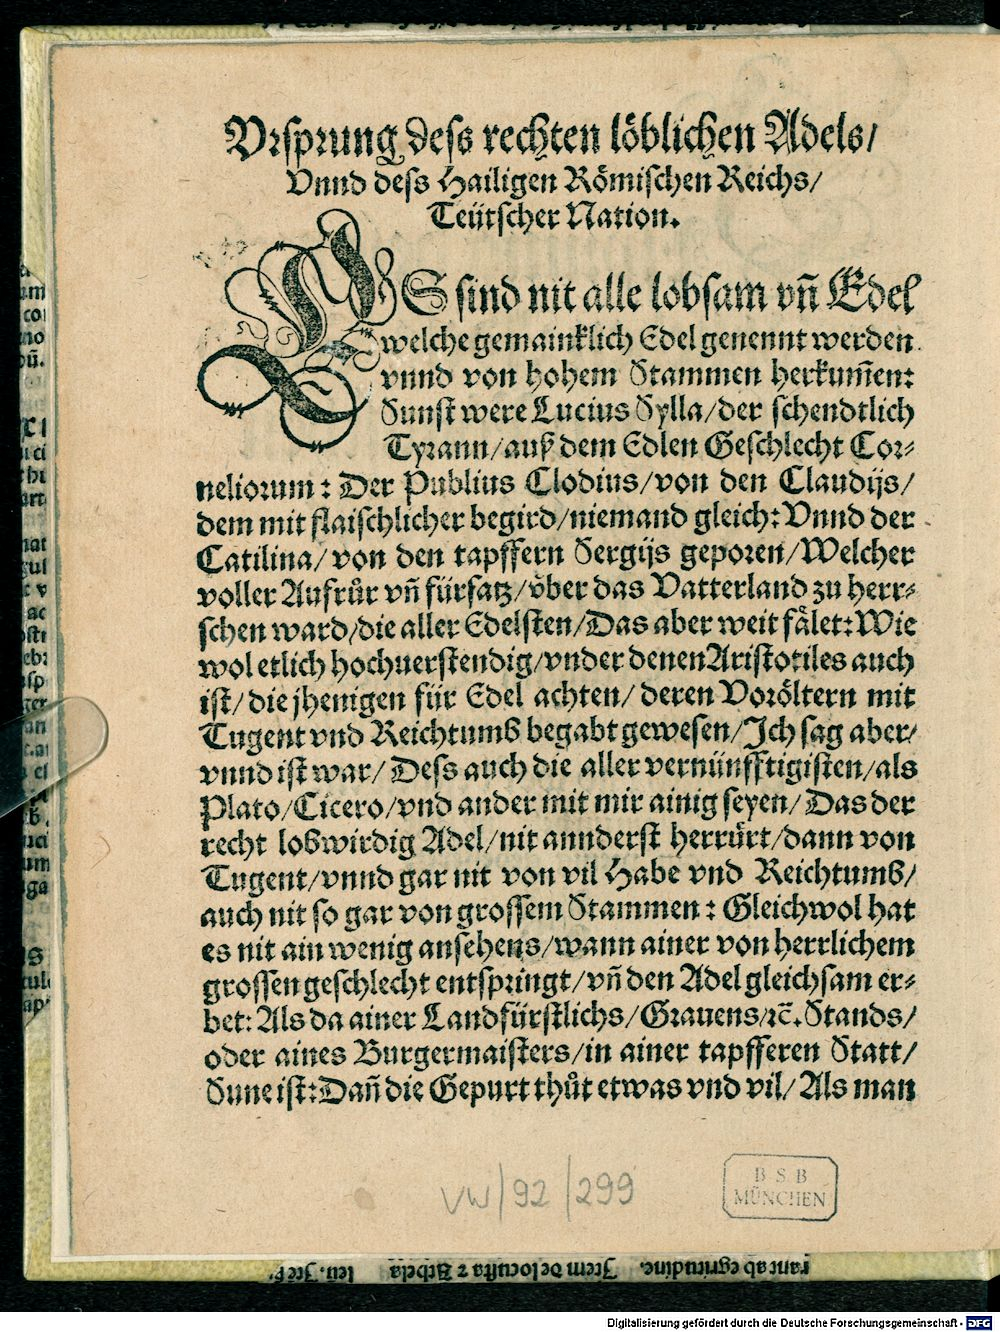 Vrsprung dess rechten löblichen Adels/
Vnnd dess Hailigen Römischen Reichs/
Teütscher Nation.
ES sind nit alle lobsam vñ Edel
welche gemainklich Edel genennt werden
vnnd von hohem Stammen herkum̃en:
Sunst were Lucius Sylla/der schendtlich
Tyrann/auß dem Edlen Geschlecht Cor⸗
neliorum: Der Publius Clodius/von den Claudijs/
dem mit flaischlicher begird/niemand gleich: Vnnd der
Catilina/von den tapffern Sergijs geporen/Welcher
voller Aufrůr vñ fürsatz/vber das Vatterland zu herr⸗
schen ward/die aller Edelsten/Das aber weit fälet: Wie
wol etlich hochuerstendig/vnder denen Aristotiles auch
ist/die jhenigen für Edel achten/deren Voröltern mit
Tugent vnd Reichtumß begabt gewesen/Ich sag aber/
vnnd ist war/Dess auch die aller vernünfftigisten/als
Plato/Cicero/vnd ander mit mir ainig seyen/Das der
recht lobwirdig Adel/nit annderst herrürt/dann von
Tugent/vnnd gar nit von vil Habe vnd Reichtumß/
auch nit so gar von grossem Stammen: Gleichwol hat
es nit ain wenig ansehens/wann ainer von herrlichem
grossen geschlecht entspringt/vñ den Adel gleichsam er⸗
bet: Als da ainer Landfürstlichs/Grauens/ꝛc̄. Stands/
oder aines Burgermaisters/in ainer tapfferen Statt/
Sune ist: Dañ die Gepurt thůt etwas vnd vil/Als man
VW/92/299
B S B
MÜNCHEN
Digitalisierung gefördert durch die Deutsche Forschungsgemeinschaft - DFG